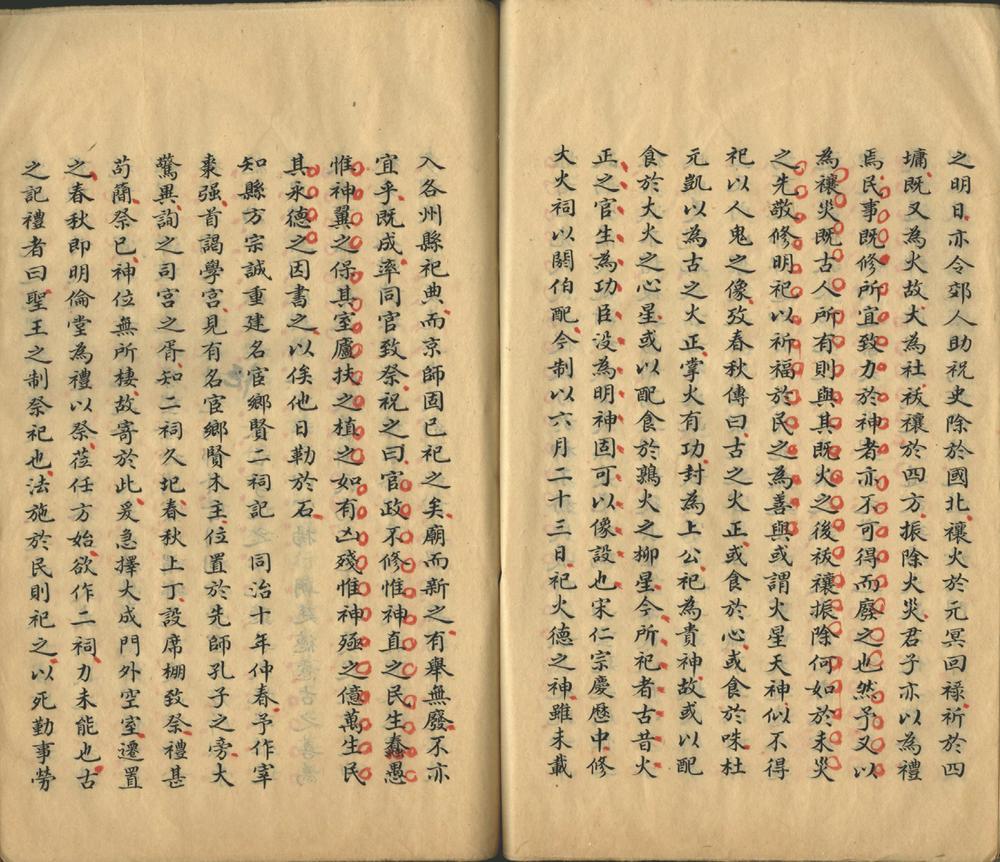 之明日亦令郊人助祝史除於國北禳火於元冥回祿祈於四
墉既又為火故大為社祓禳於四方振除火災君子亦以為禮
焉民事既修所宜致力於神者亦不可得而廢之也然予又以
為禳災既古人所有則與其既火之後祓禳振除何如於未災
之先敬修明祀以祈福於民之為善與或謂火星天神似不得
祀以人鬼之像攷春秋傳曰古之火正或食於心或食於咮杜
元凱以為古之火正掌火有功封為上公祀為貴神故或以配
食於大火之心星或以配食於鶉火之柳星今所祀者古昔火
正之官生為功臣没為明神固可以像設也宋仁宗慶歷中修
大火祠以閼伯配今制以六月二十三日祀火德之神雖未載
入各州縣祀典而京師固已祀之矣廟而新之有舉無廢不亦
宜乎既成率同官致祭祝之曰官政不修惟神直之民生蠢愚
惟神翼之保其室廬扶之植之如有凶殘惟神殛之億萬生民
其永德之因書之以俟他日勒於石
知縣方宗誠重建名宦鄉賢二祠記 同治十年仲春予作宰
棗强首謁學宮見有名宦鄉賢木主位置於先師孔子之旁大
驚異詢之司宮之胥知二祠久圮春秋上丁設席棚致祭禮甚
苟簡祭已神位無所棲故寄於此爰急擇大成門外空室遷置
之春秋即明倫堂為禮以祭莅任方始欲作二祠力未能也古
之記禮者曰聖王之制祭祀也法施於民則祀之以死勤事勞